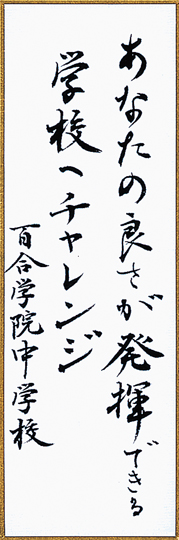 あなたの良さが発揮できる
学校へチャレンジ
百合学院中学校